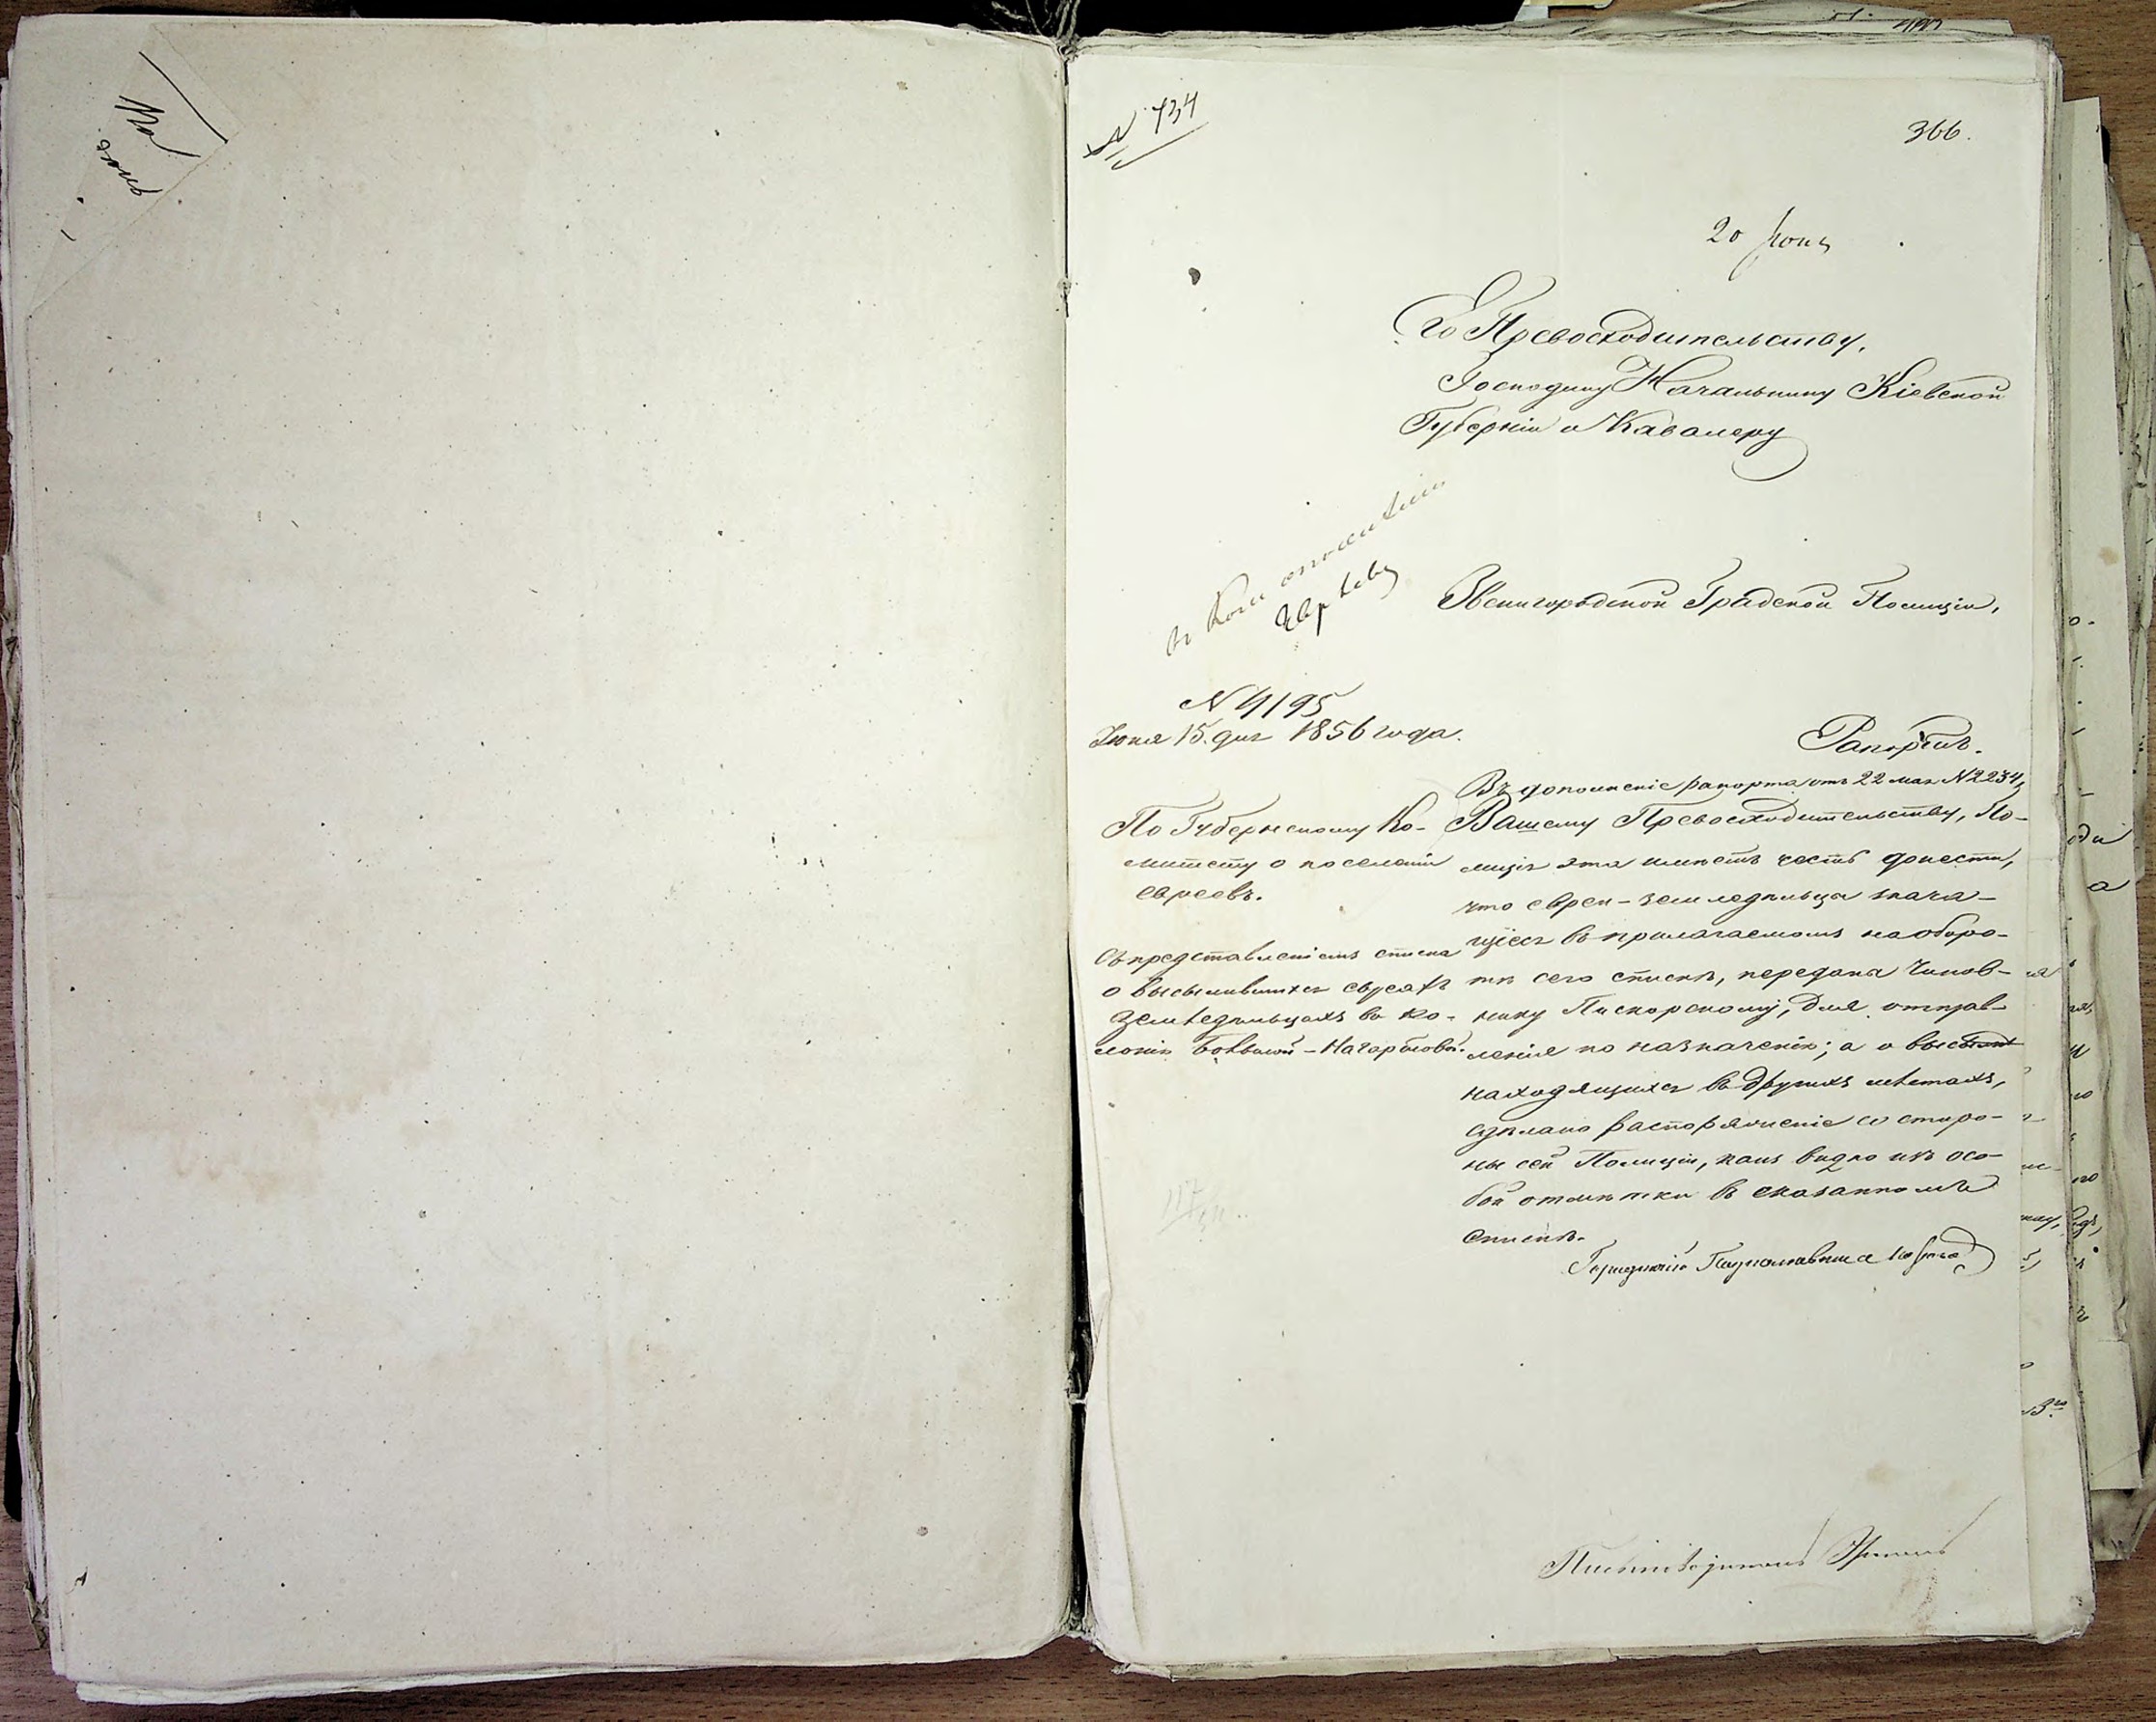 № 734
366.
20 Іюня
Его Превосходительству,
Господину Начальнику Кіевской
Губерніи и Кавалеру
Звенигородской Градской Полиціи,
№ 4195
Іюня 15 дня 1856 года.
Рапортъ.
По Губернскому Ко-
митету о поселеніи
евреевъ.
Съ представленіемъ списка
о высылившихся евреяхъ
земледѣльцахъ въ ко-
лонію
Въ дополненіе рапорта отъ 22 мая №2234,
Вашему Превосходительству, По-
лиція эта имѣетъ честь донести,
что евреи-земледѣльцы знача-
щіеся въ прилагаемомъ на оборо-
тѣ сего спискѣ, переданы Чинов-
нику Пискорскому, для отправ-
ленія по назначенію; а о высылкѣ
находящихся въ другихъ мѣстахъ,
сдѣлано распоряженіе со сторо-
ны сей Полиціи, какъ видно изъ осо-
бой отмѣтки въ сказанномъ
спискѣ.
Городничій
Письмоводитель